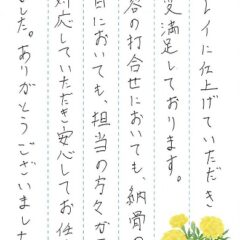 レイに仕上げていただき
変満足しております。
容の打合せにおいても、納骨の
日においても、担当の方々が
対応していただき安心してお任
した。ありがとうございました